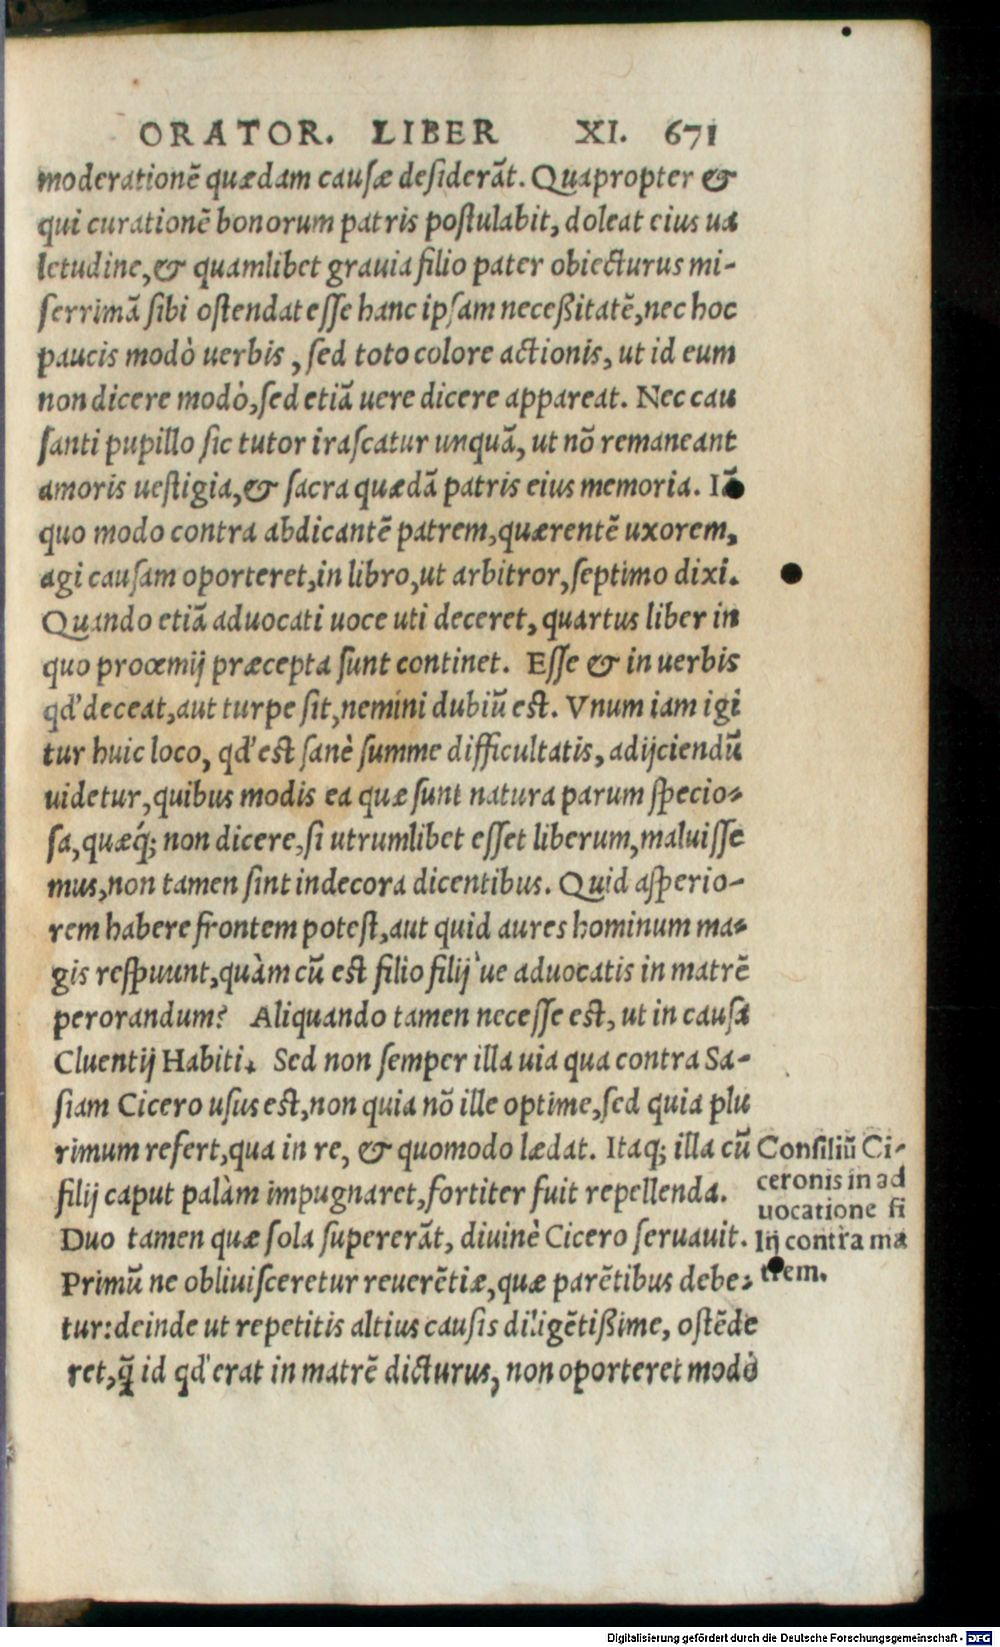 ORATOR. LIBER XI. 671
moderationẽ quædam causæ desiderãt. Quapropter &
qui curationẽ bonorum patris postulabit, doleat eius ua
letudine, & quamlibet grauia filio pater obiecturus mi-
serrimã sibi ostendat esse hanc ipsam neceßitatẽ, nec hoc
paucis modò uerbis, sed toto colore actionis, ut id eum
non dicere modò, sed etiã uere dicere appareat. Nec cau
santi pupillo sic tutor irascatur unquã, ut nõ remaneant
amoris uestigia, & sacra quædã patris eius memoria. Iã
quo modo contra abdicantẽ patrem, quærentẽ uxorem,
agi causam oporteret, in libro, ut arbitror, septimo dixi.
Quando etiã aduocati uoce uti deceret, quartus liber in
quo proœmij præcepta sunt continet. Esse & in uerbis
qd' deceat, aut turpe sit, nemini dubiũ est. Vnum iam igi
tur huic loco, qd' est sanè summe difficultatis, adijciendũ
uidetur, quibus modis ea quæ sunt natura parum specio-
sa, quæq́; non dicere, si utrumlibet esset liberum, maluisse
mus, non tamen sint indecora dicentibus. Quid asperio-
rem habere frontem potest, aut quid aures hominum ma-
gis respuunt, quàm cũ est filio filij'ue aduocatis in matrẽ
perorandum? Aliquando tamen necesse est, ut in causa
Cluentij Habiti. Sed non semper illa uia qua contra Sa-
siam Cicero usus est, non quia nõ ille optime, sed quia plu
rimum refert, qua in re, & quomodo lædat. Itaq; illa cũ
filij caput palàm impugnaret, fortiter fuit repellenda.
Duo tamen quæ sola supererãt, diuinè Cicero seruauit.
Primũ ne obliuisceretur reuerẽtiæ, quæ parẽtibus debe-
tur: deinde ut repetitis altius causis diligẽtißime, ostẽde
ret, q̃ id qd' erat in matrẽ dicturus, non oporteret modò
Consiliũ Ci-
ceronis in ad
uocatione fi
lij contra ma
trem.
Digitalisierung gefördert durch die Deutsche Forschungsgemeinschaft - DFG